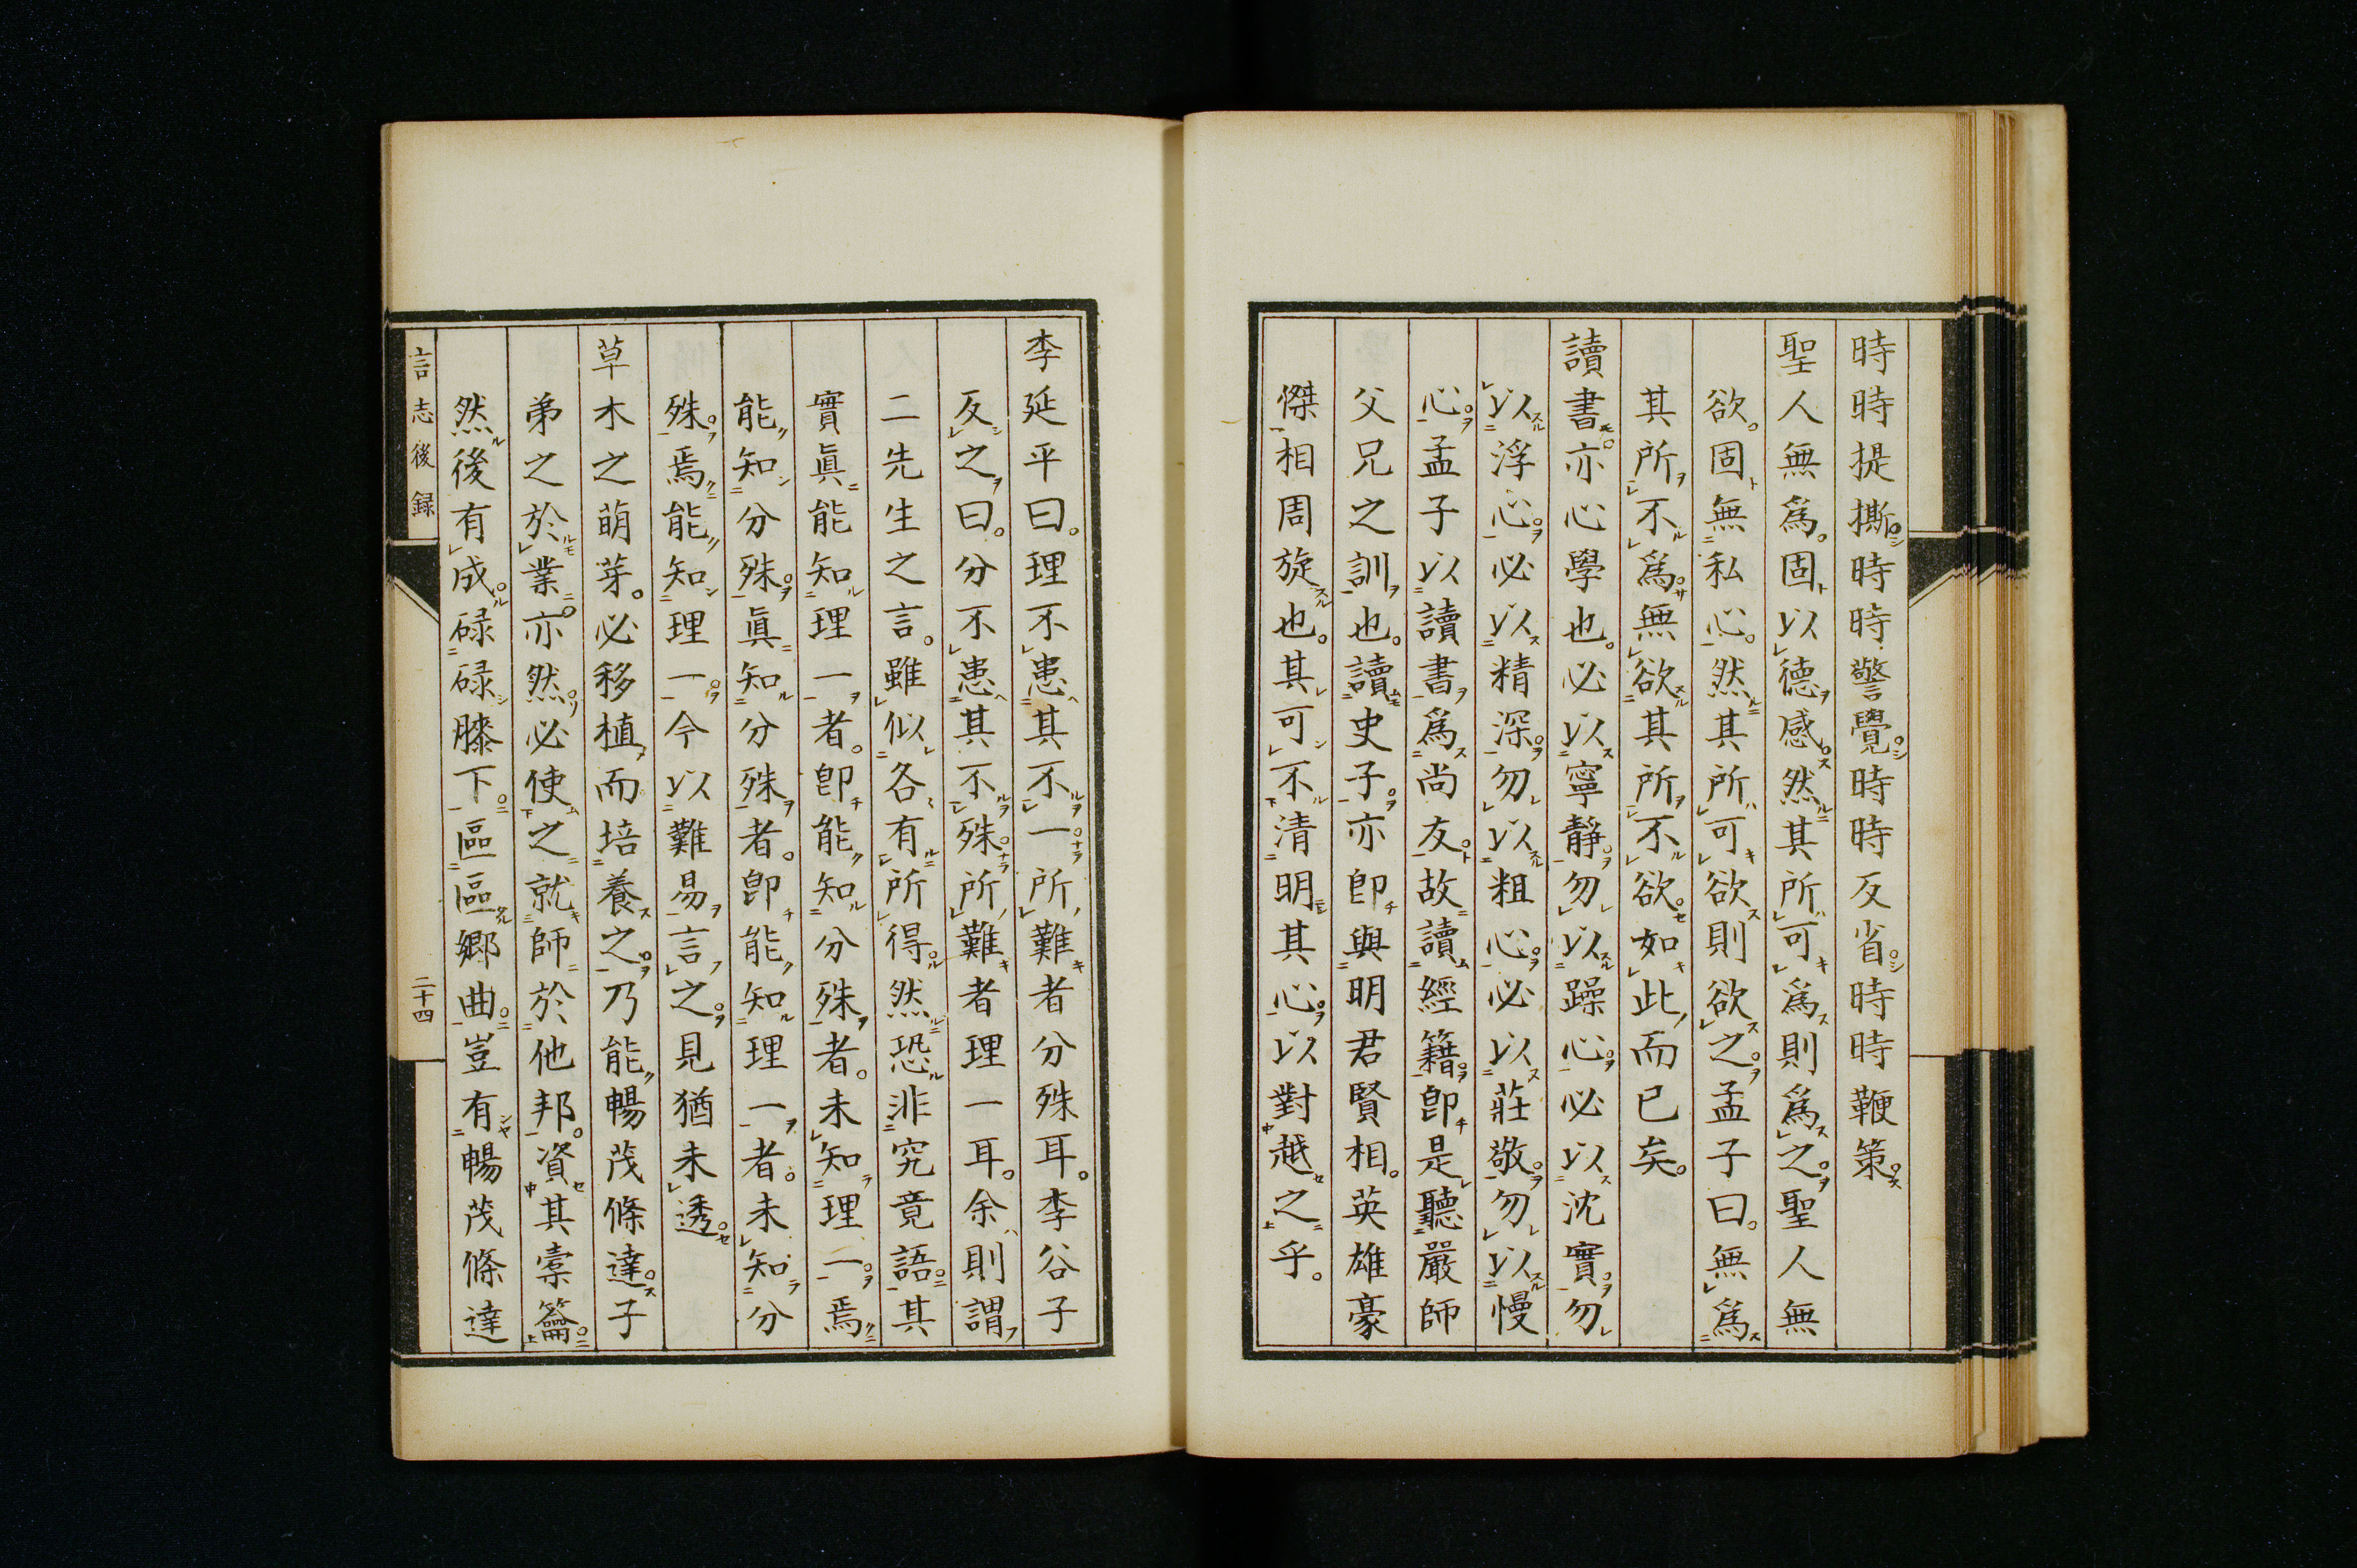 時時提撕。時時警覺。時時反省。時時鞭策。
聖人無爲。固以德感。然其所可爲則爲之。聖人無
欲。固無私心。然其所可欲則欲之。孟子曰。無爲
其所不爲。無欲其所不欲。如此而已矣。
讀書。亦心學也。必以寧靜。勿以躁心。必以沈實。勿
以浮心。必以精深。勿以粗心。必以莊敬。勿以慢
心。孟子以讀書爲尚友。故讀經籍。即是聽嚴師
父兄之訓也。讀史子。亦即與明君賢相。英雄豪
傑相周旋也。其可不清明其心。以對越之乎。
李延平曰。理不患其不一。所難者分殊耳。李谷子
反之曰。分不患其不殊。所難者理一耳。余則謂
二先生之言。雖似各有所得。然恐非究竟語。其
實眞能知理一者。即能知分殊者。未知理一。焉
能知分殊。眞知分殊者。即能知理一者。未知分
殊。焉能知理一。今以難易言之。見猶未透。
草木之萌芽。必移植而培養之。乃能暢茂條達。子
弟之於業。亦然。必使之就師於他邦。資其橐籥。
然後有成。碌碌膝下。區區郷曲。豈有暢茂條達
言志後録
二十四